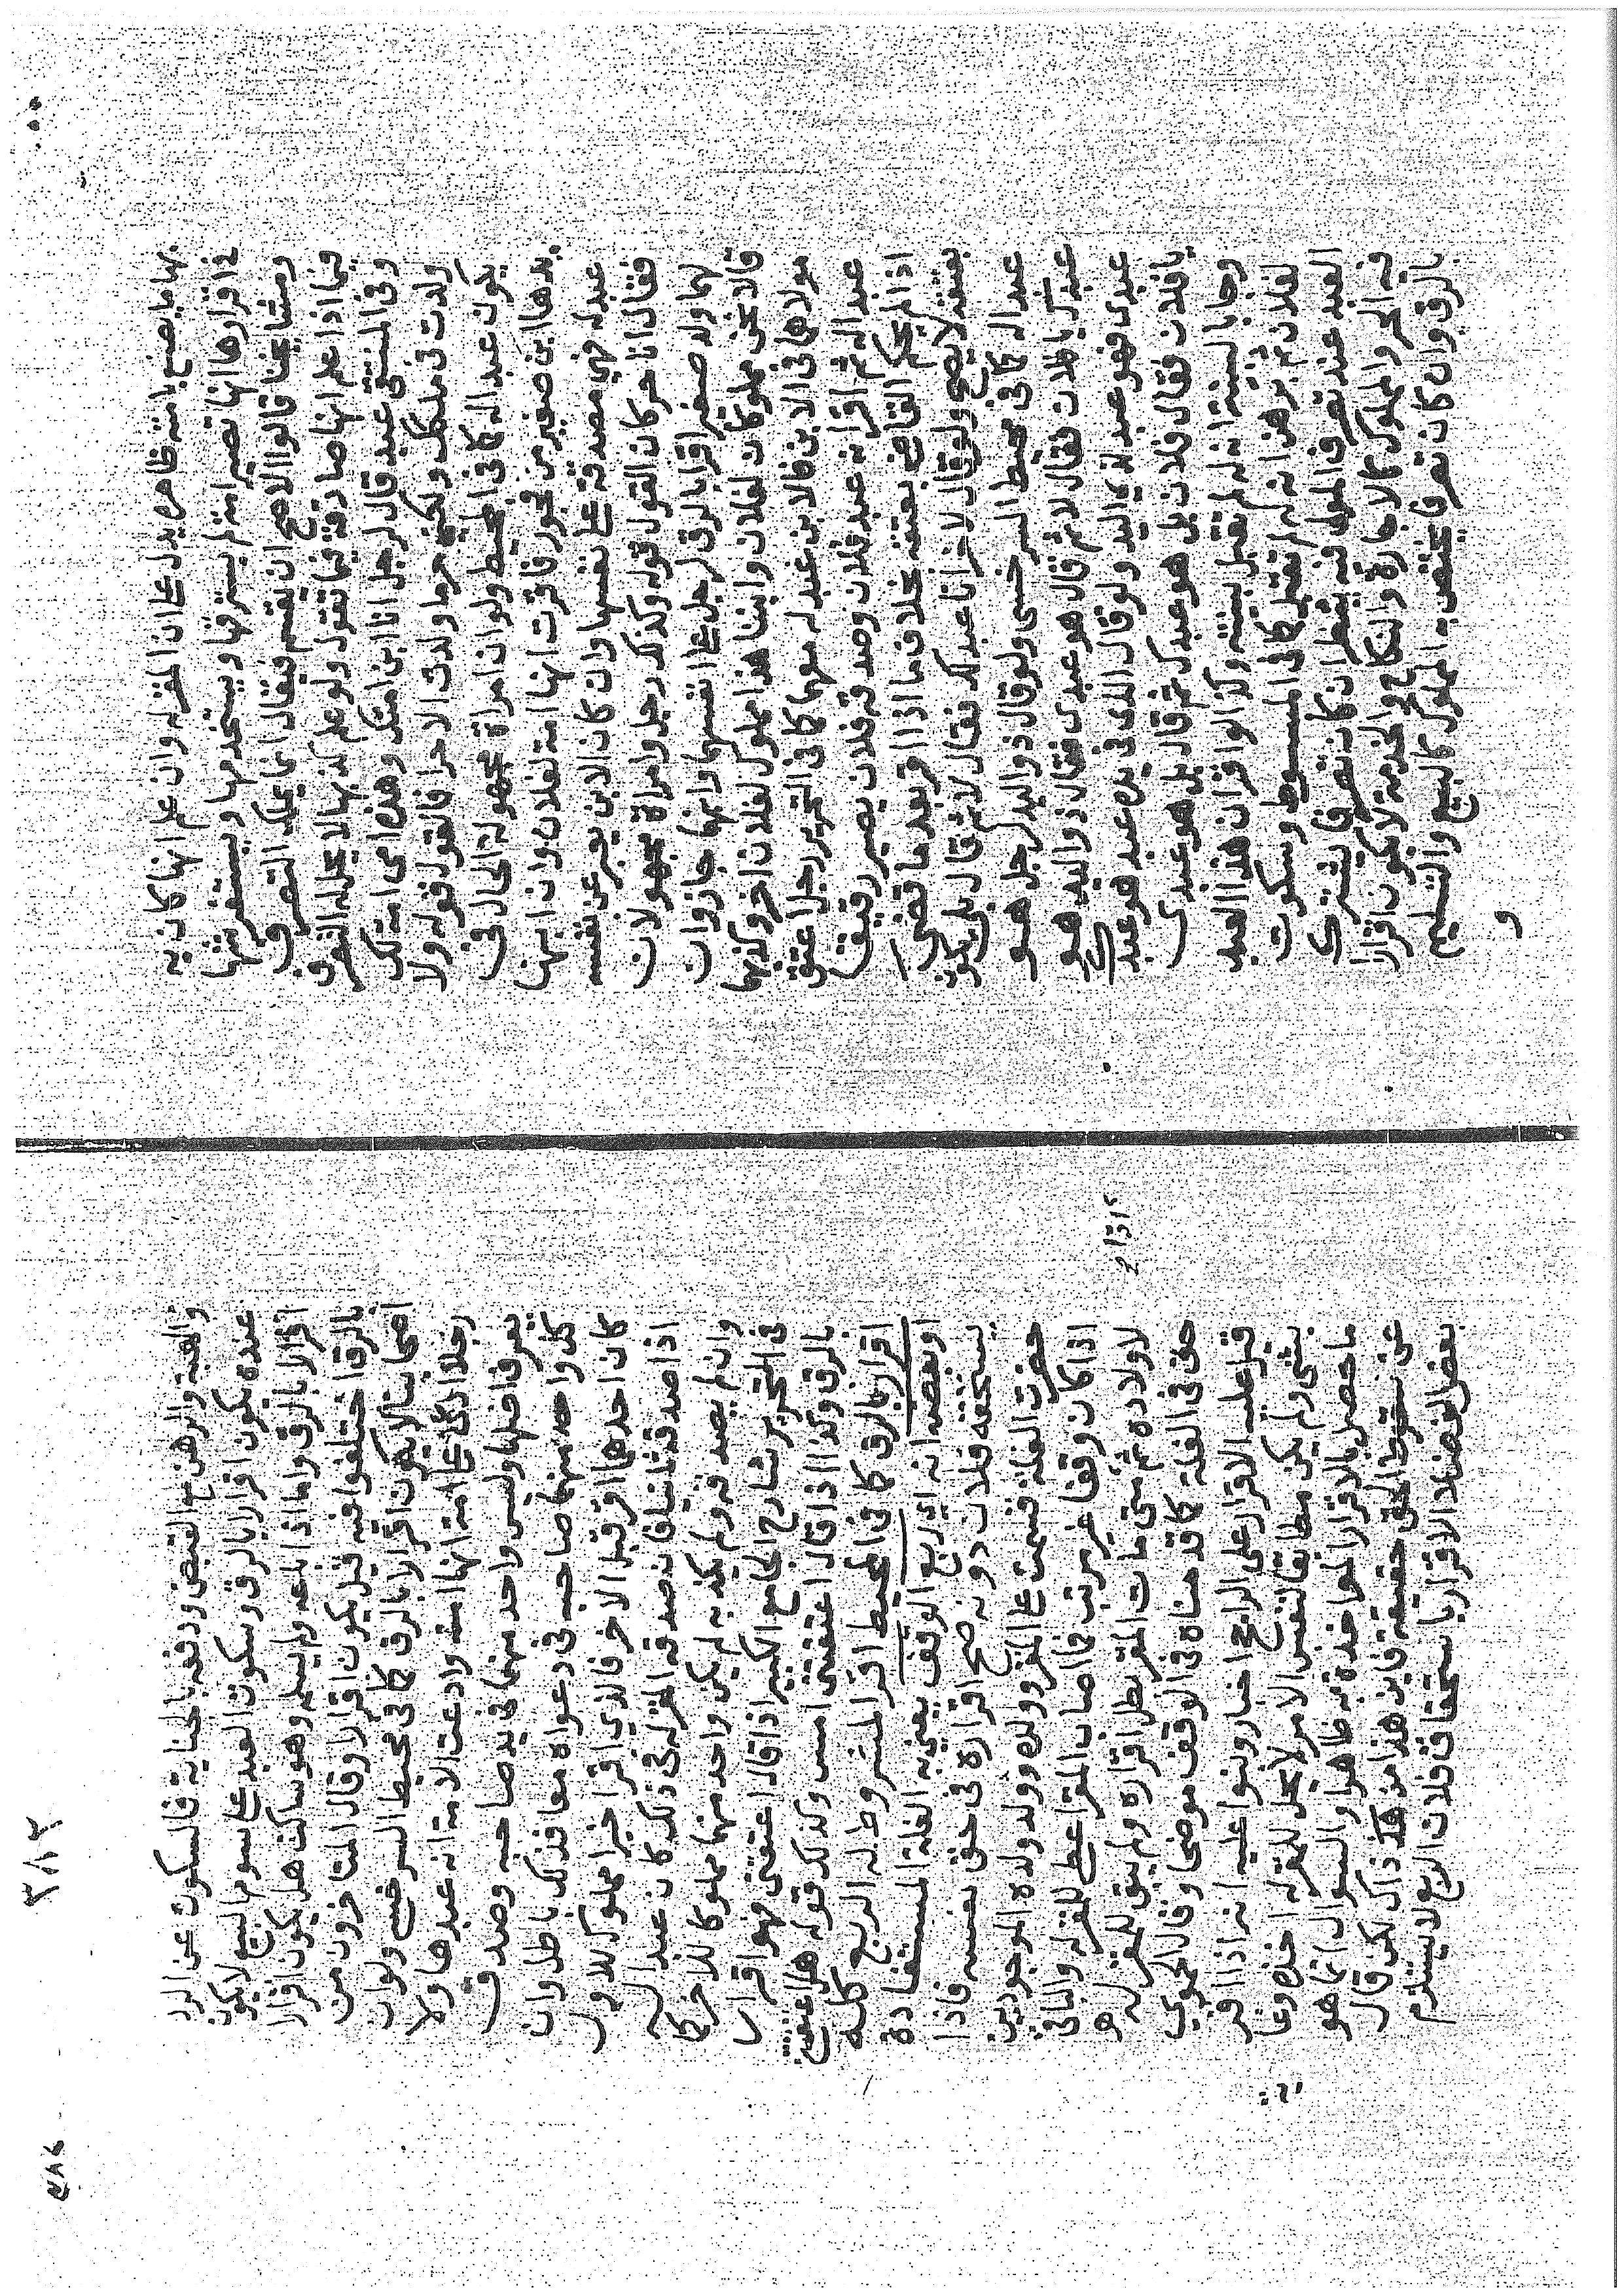 بها ما يصنع بامته ظاهره يدل على ان المقر له وان علم انها كاذبة
في اقرارها انها تصير امته لم يسترقها ويستخدمها ويستفرشها
ومشايخنا قالوا الاصح ان يقسم فيقال انما يحل التصرف
فيما اذا علم انها صادقة فيما تقول ولو علم كذبها لا يحل له التصرف
وفي المنتقى عبد قال لرجل انا ابن امتك وهذه امي امة لك
ولدت في ملكك ولكني حر ما ولدت الا حرا فالقول قوله ولا
يكون عبدا له كما في المحيط ولو ان امراة مجهولة الحال في
يدها ابن صغير من فجور فاقرت انها امة لفلان وان ابنها
عبد له فهي مصدقة على نفسها وان كان الابن يعبر عن نفسه
فقال انا حر كان القول قوله وكذلك رجل وامراة مجهولان
لهما ولد صغير اقرا بالرق لرجل على انفسهما وابنهما جاز وان
قالا نحن مملوكان لفلان وابننا هذا مملوك لفلان اخر وكذبهما
مولاهما في الابن فالابن عبد له معهما كما في التحرير رجل اعتق
عبدا له ثم اقر انه عبد فلان وصدقه فلان يصير رقيقا
اذا لم يحكم القاضي بعتقه بخلاف ما اذا اقر بعد ما قضى
بعتقه لا يصح ولو قال لاخر انا عبد لك فقال لا ثم قال بلى يكون
عبدا له كما في محيط السرخسي ولو قال ذو اليد لرجل هو
عبدك يا فلان فقال لا ثم قال هو عبدي فقال ذو اليد هو
عبدي فهو عبد لذي اليد ولو قال الذي في يده عبد هو عبد
يا فلان فقال فلان بل هو عبدك ثم قال بل هو عبدي
وجا بالبينة انه له لم تقبل بينته وكذا لو اقر ان هذا العبد
لفلان ثم برهن انه له لم تقبل كما في المبسوط وسكوت
العبد عند تصرف المولى فيه ينظر ان كان تصرفا يشترك
فيه الحر والمملوك كالاجارة والنكاح والخدمة لا يكون اقرارا
بالرق وان كان تصرفا يختص به المملوك كالبيع والتسليم
و
٣٨٢
والهبة والرهن مع القبض ودفعه بالجناية فالسكوت عن الرد
عنده يكون اقرارا بالرق وسكوت العبد على سوم البيع لا يكون
اقرارا بالرق واما اذا باعه ولم يسلمه وهو ساكت هل يكون اقرارا
بالرق اختلفوا فيه قيل يكون اقرارا وقال المتاخرون من
اصحابنا لا يكون اقرارا بالرق كما في محيط السرخسي ولو ان
رجلا ادعى على امة انها امته وادعت الامة انه عبدها ولا
يعرف اصلها وليس واحد منهما في يد صاحبه وصدق
كل واحد منهما صاحبه في دعواه معا فذلك باطل وان
كان احدهما اقر قبل الاخر فالذي اقر اخيرا مملوك للاول
اذا صدقه ثانيا فان صدقه المقر له في ذلك كان عبدا له
وان لم يصدقه ولم يكذبه لم يكن واحد منهما مملوكا للاخر كما
في التحرير شارح الجامع الكبير اذا قال اعتقني فهو اقرار
بالرق وكذا اذا قال اعتقتني امس وكذلك قوله هل اعتقتني
اقرار بالرق كما في المحيط اقر المشروط له الربع كله
او بعضه انه اي ربع الوقف يعني به الغلة المستفادة
يستحقه فلان دونه صح اقراره في حق نفسه فاذا
حضرت الغلة قسمت على المقر وولده وولد ولده الموجودين
اذا كان وقفا غير مرتب فما اصاب المقر اعطي للمقر له والباقي
لاولاده ثم متى مات المقر بطل اقراره ولم يبق للمقر له
حق في الغلة كما قدمناه في الوقف موضحا وقال الحموي
قيل عليه الاقرار على الراجح اخبار وبنوا عليه انه اذا اقر
بشي ولم يكن مطابقا لنفس الامر لا يحل للمقر له اخذه وغا
ما حصل بالاقرار المواخذة به ظاهرا والسوال انما هو
عن سقوط الحق حقيقة فاين هذا من ذاك لكن قال
بعض الفضلا الاقرار باستحقاق فلان الربع لا يستلزم